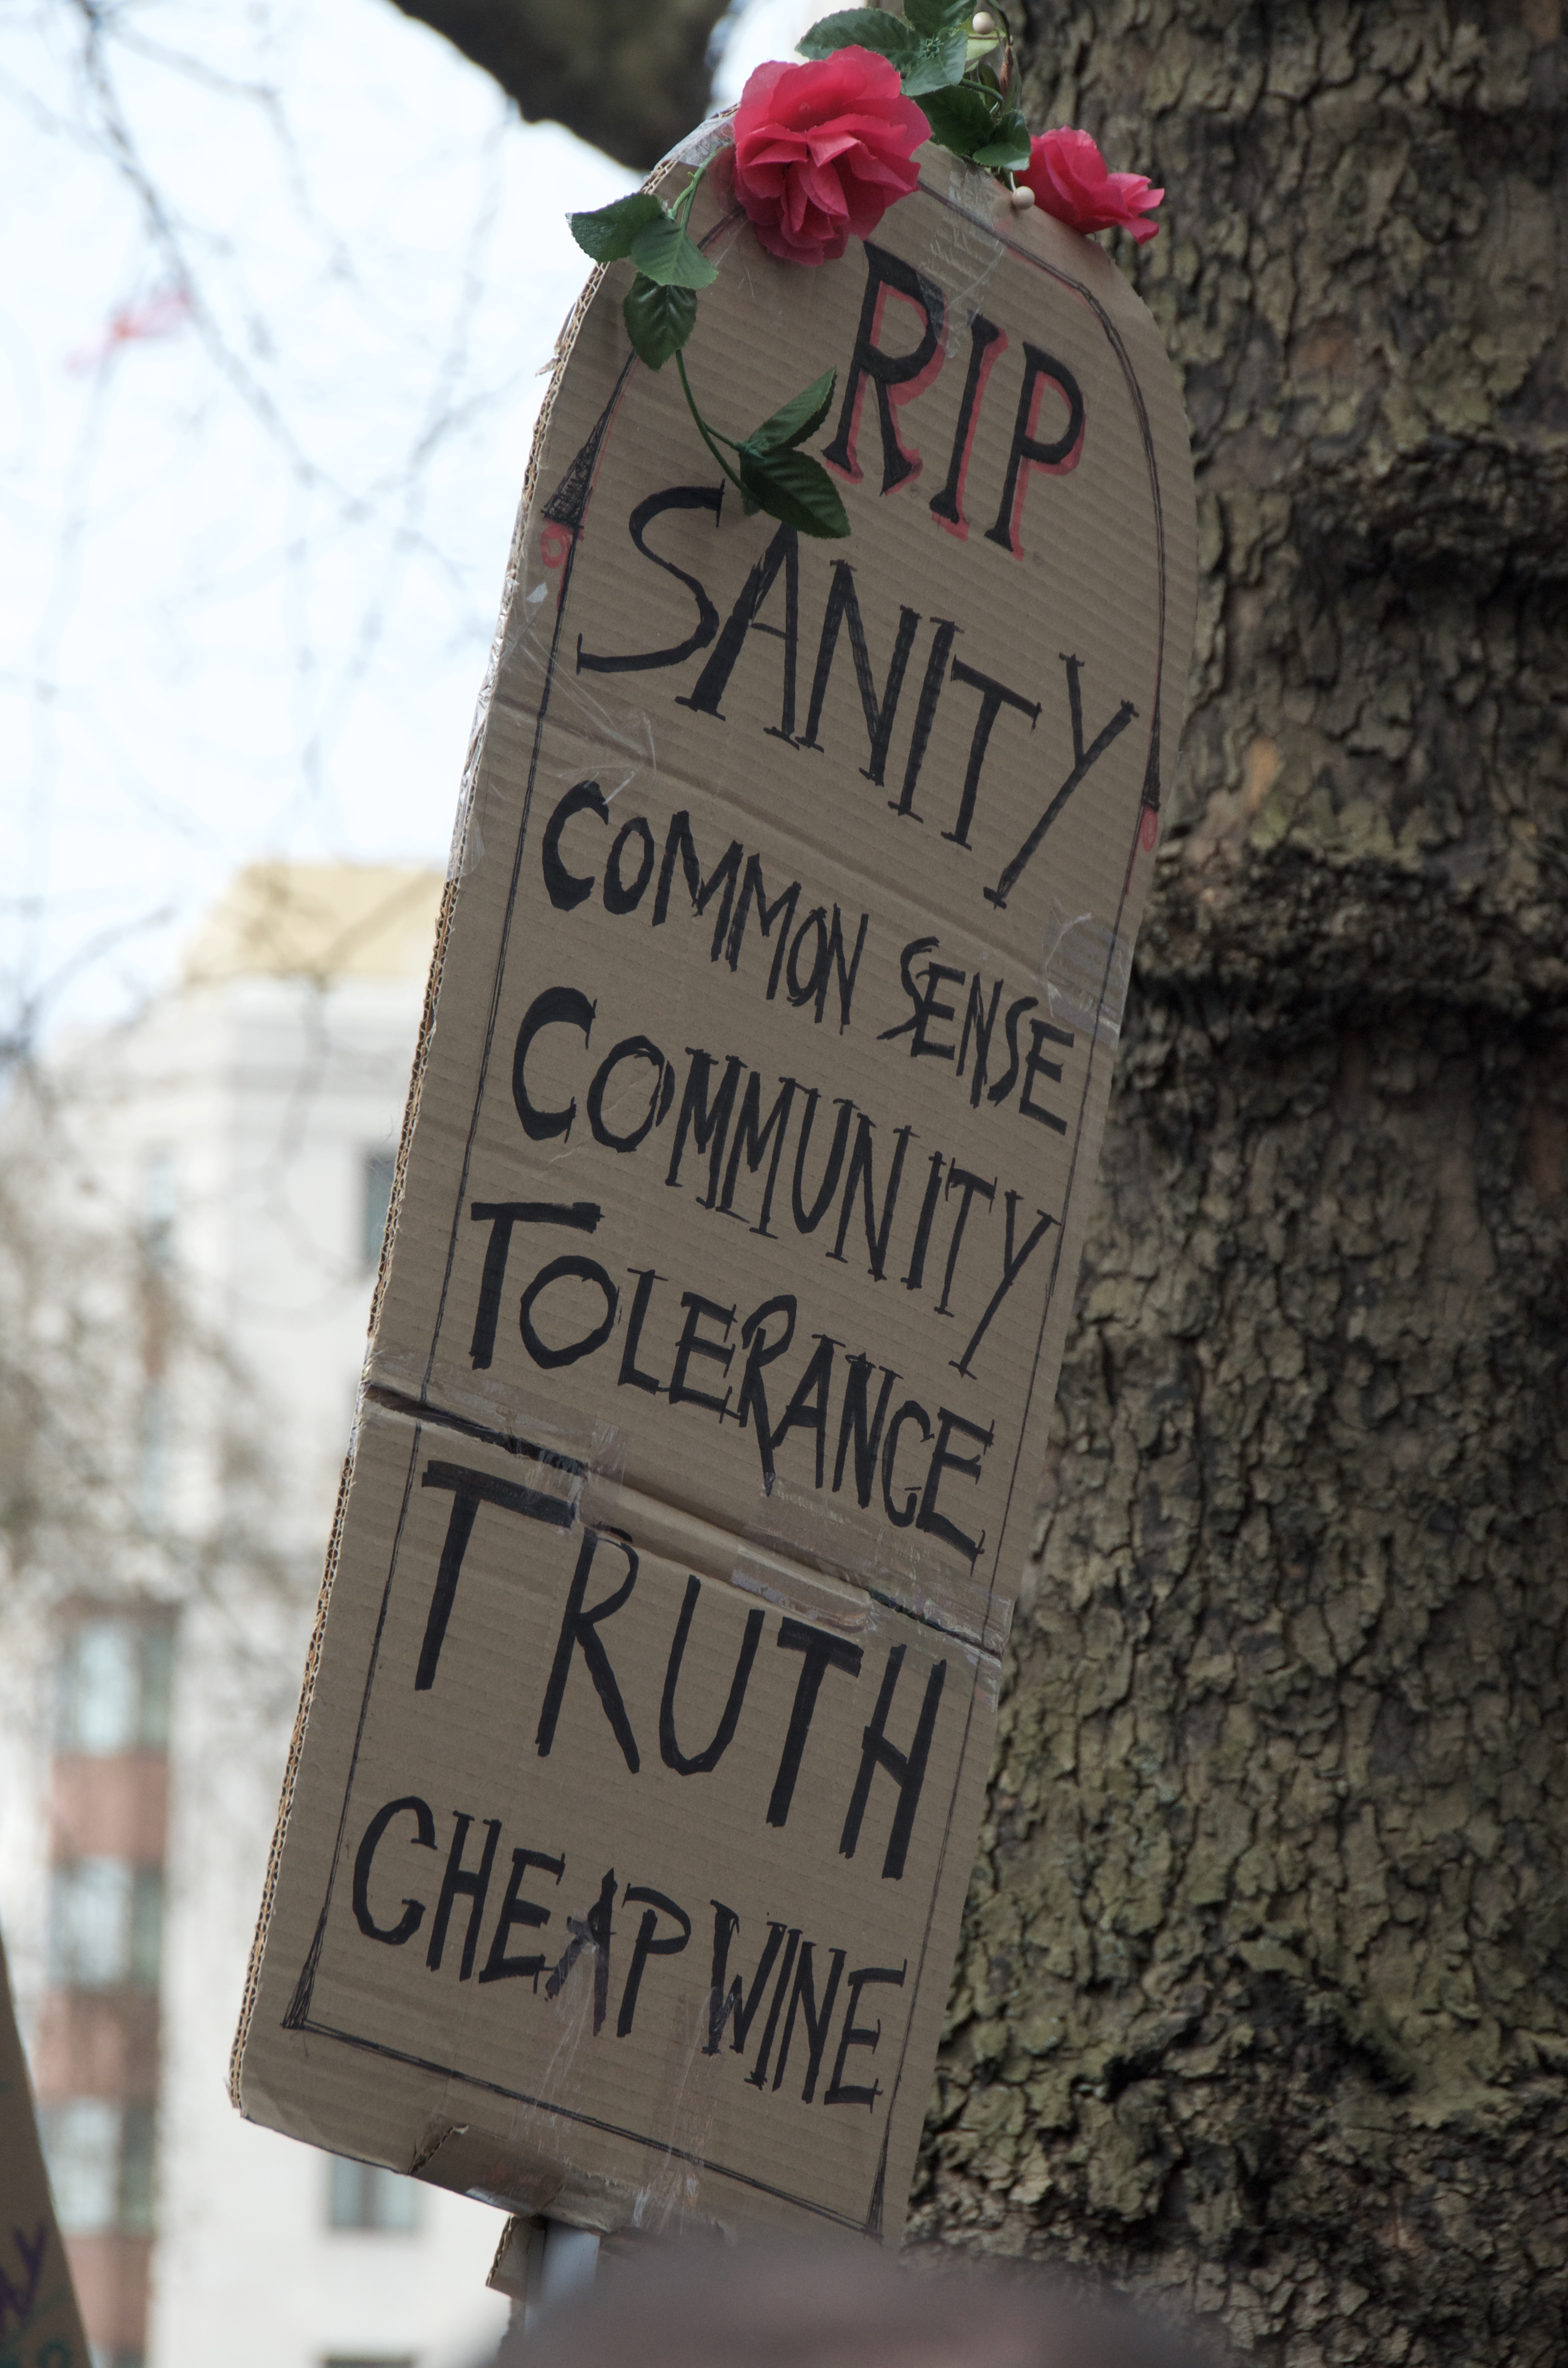 RIP
SANITY
COMMON SENSE
COMMUNITY
TOLERANCE
TRUTH
CHEAP WINE